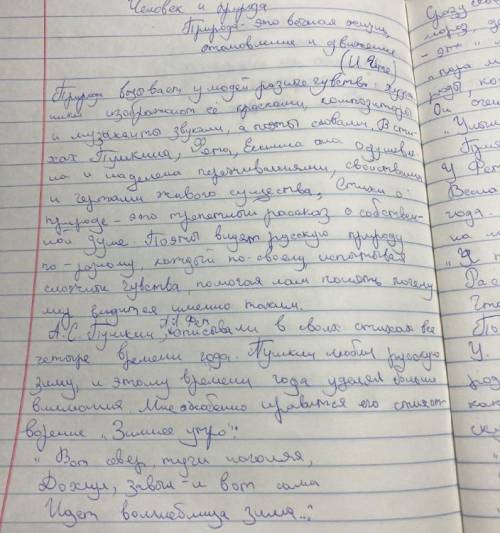 Человек и природа
Природа - это вечная жизнь,
становление и движение
(И Гёте)
Природа вызывает у людей разные чувства: худож
ники изображают её красками, композиторы
и музыканты звуками, а поэты словами. В сти-
хах Пушкина, Фета, Есенина она одушевле-
на и наделена переживаниями, свойствами
и чертами живого существа, Стихи о
природе - это трепетный рассказ о собствен-
ной душе. Поэты видят русскую природу
по-разному, каждый по-своему, испытывая
сложные чувства, помогая нам понять почему
му видится именно таким.
А.С. Пушкин, А.А. Фет описывали в своих стихах все
четыре времени года. Пушкин любил русскую
зиму, и этому времени года уделял больше
внимания Мне особенно нравится его стихот
ворение "Зимнее утро":
"Вот север, тучи нагоняя,
Дохнул, завыл - и вот сама
Идет волшебница зима..."
Сразу
мороз
- это "
поэта
роды, ко
Он очен
"Унын
У Фет
Всего
года.
на
"Я
Рас
Что
По
У.
как